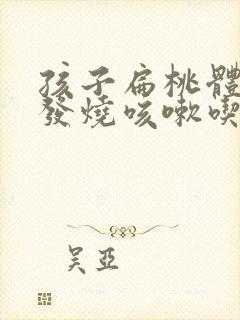 孩子扁桃體
發燒咳嗽喫
吴亞